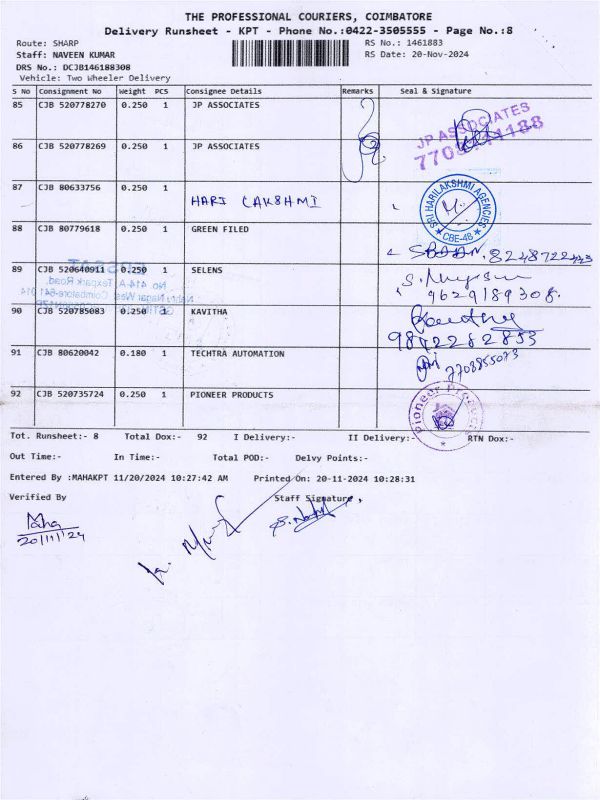 THE PROFESSIONAL COURIERS, COIMBATORE
Delivery Runsheet - KPT - Phone No.:0422-3505555 - Page No.:8
Route: SHARP RS No.: 1461883
Staff: NAVEEN KUMAR RS Date: 20-Nov-2024
DRS No.: DCJB146188308
Vehicle: Two Wheeler Delivery
S No Consignment No Weight PCS Consignee Details Remarks Seal & Signature
85 CJB 520778270 0.250 1 JP ASSOCIATES
JP ASSOCIATES
86 CJB 520778269 0.250 1 JP ASSOCIATES
87 CJB 80633756 0.250 1 HARI LAKSHMI
SRI HARILAKSHMI AGENCIES
CBE-46
88 CJB 80779618 0.250 1 GREEN FILED
89 CJB 520640911 0.250 1 SELENS
No 414-A, Texpark Road,
Nehru Nagar West, Coimbatore-641 014
90 CJB 520785083 0.250 1 KAVITHA
9842282853
91 CJB 80620042 0.180 1 TECHTRA AUTOMATION
7708855073
92 CJB 520735724 0.250 1 PIONEER PRODUCTS
Pioneer
Tot. Runsheet:- 8 Total Dox:- 92 I Delivery:- II Delivery:- RTN Dox:-
Out Time:- In Time:- Total POD:- Delvy Points:-
Entered By :MAHAKPT 11/20/2024 10:27:42 AM Printed On: 20-11-2024 10:28:31
Verified By Staff Signature,
Maha
20/11/24